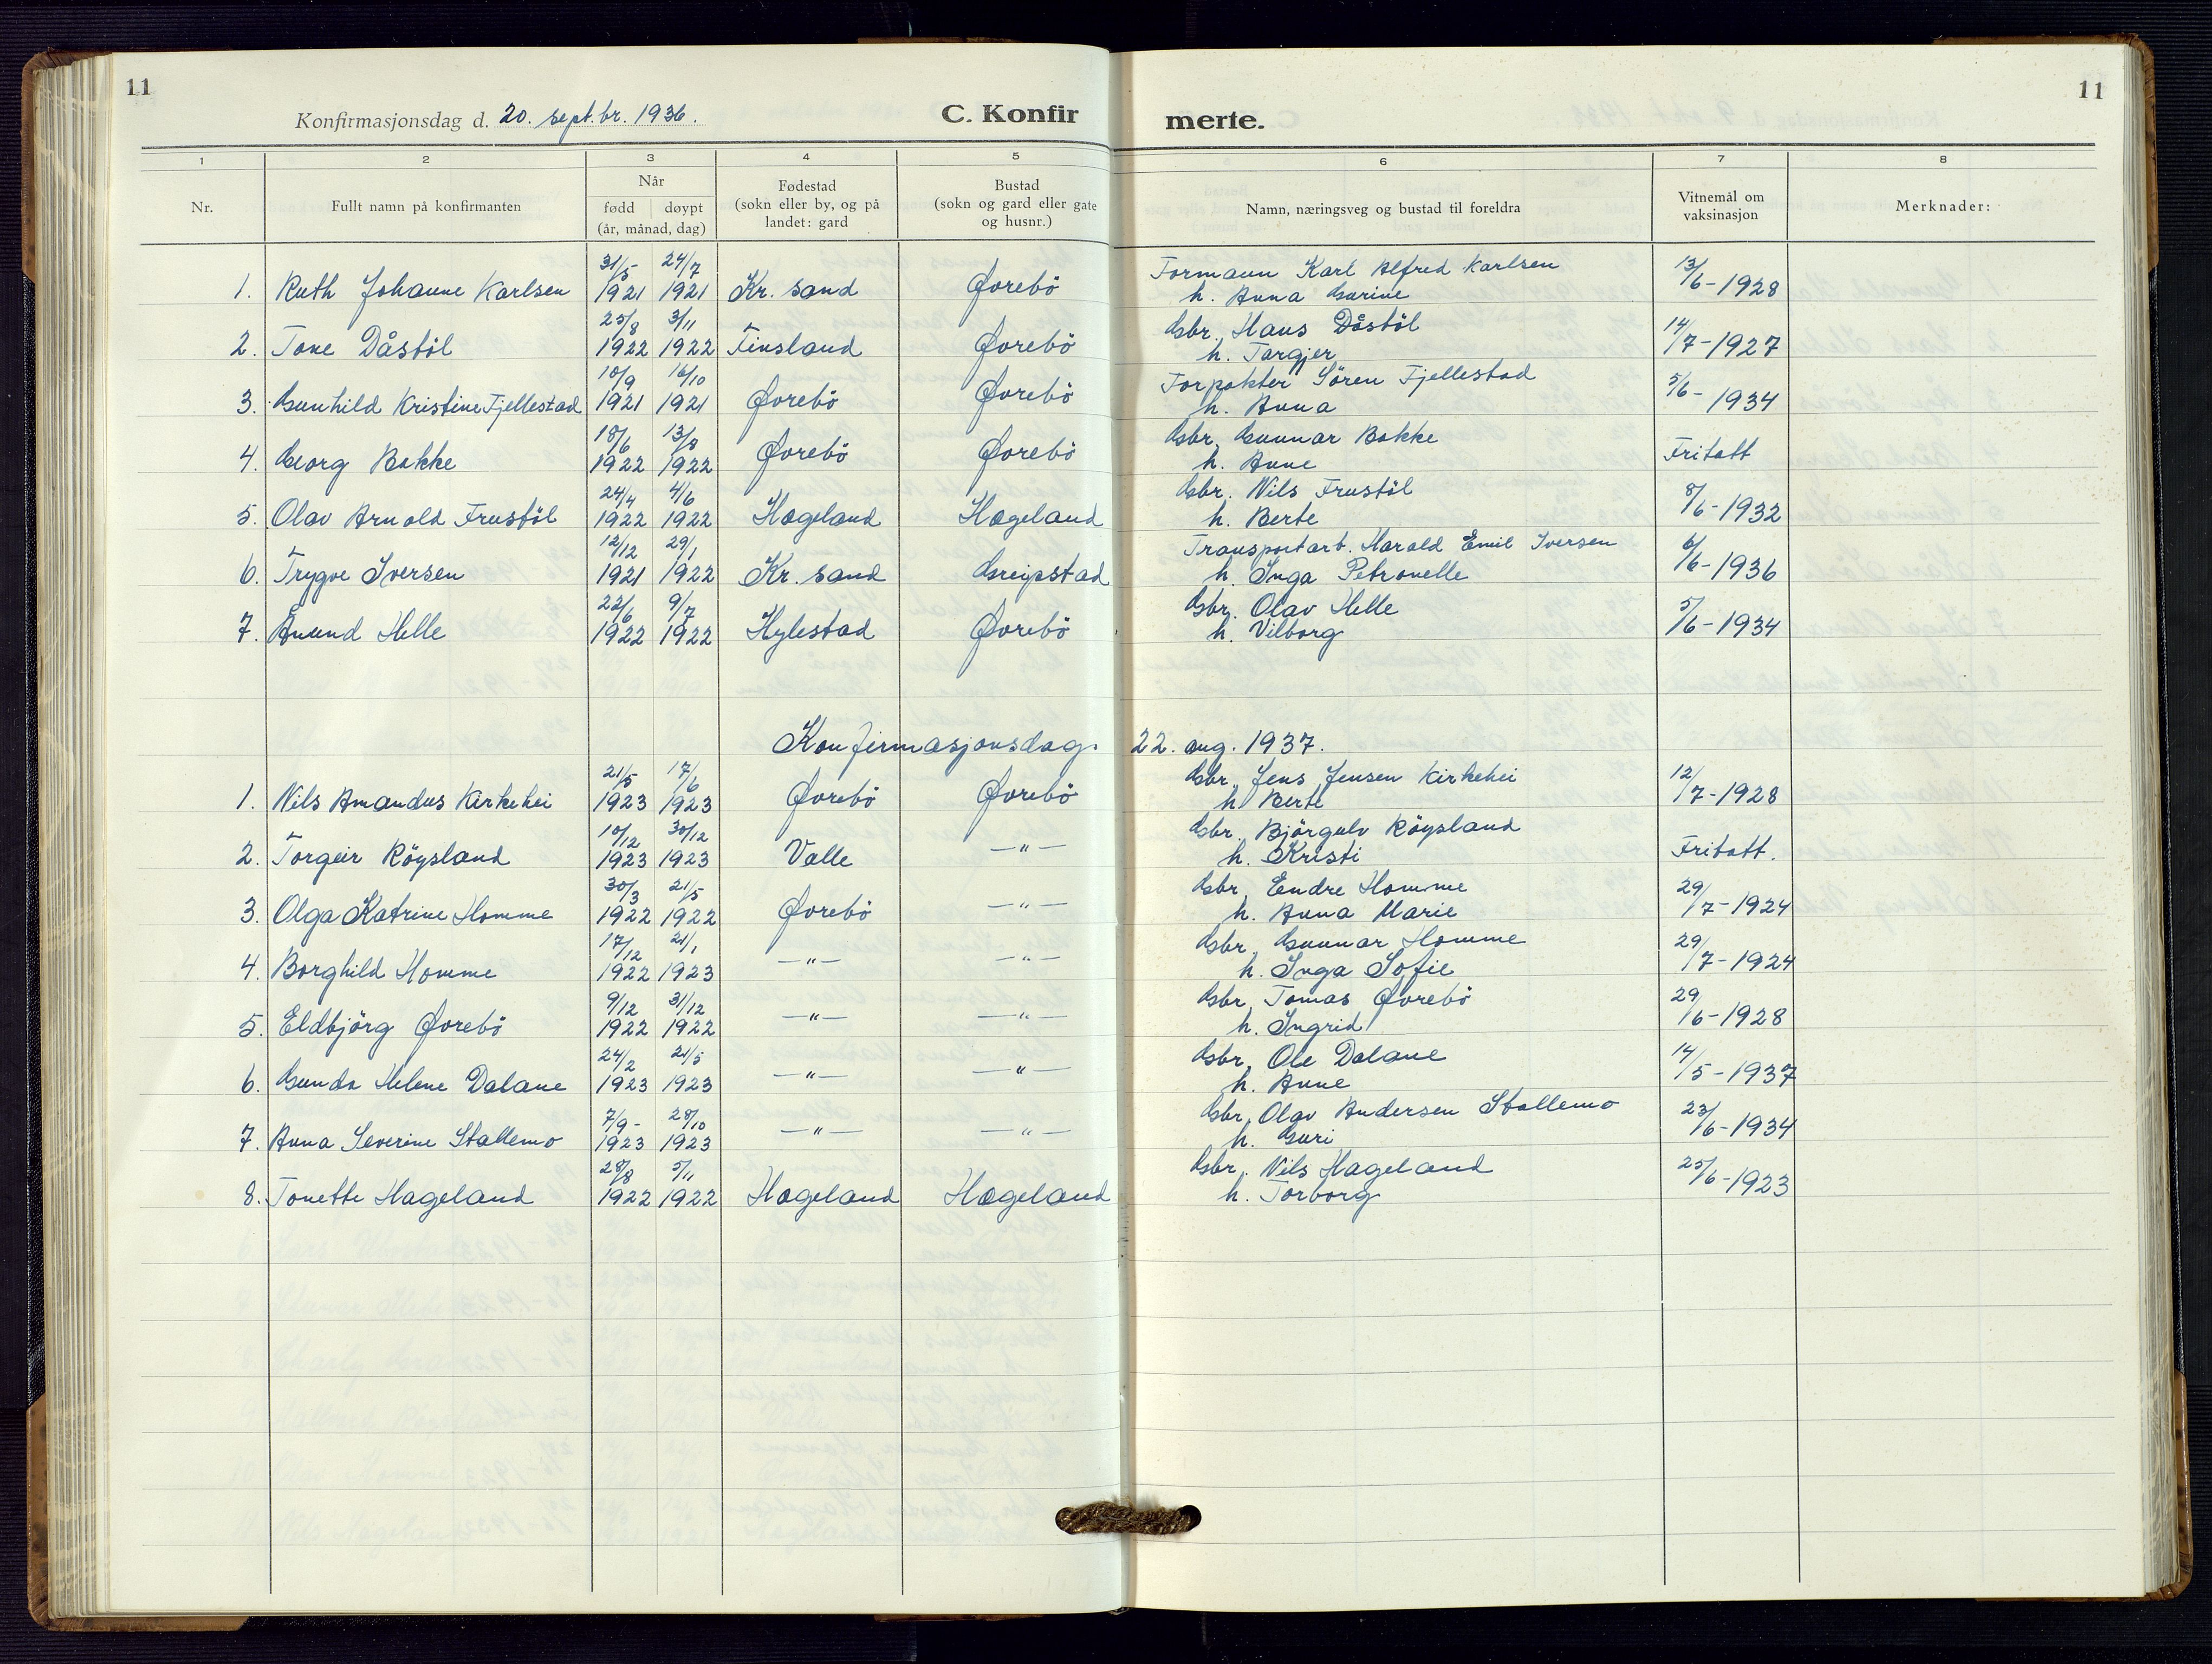 11
11
Konfirmasjonsdag d. 20. sept.br. 1936.
C. Konfirmerte.
1 2 3 4 5 6 7 8
Nr.
Fullt namn på konfirmanten
Når
født | døypt
(år, månad, dag)
Fødestad
(sokn eller by, og på
landet: gard
Bustad
(sokn og gard eller gate
og husnr.)
Namn, næringsveg og bustad til foreldra
Vitnemål om
vaksinasjon
Merknader:
31/5 24/7 Formann Karl Alfred Karlsen 13/6-1928
1. Ruth Johanne Karlsen 1921 1921 Kr. sand Øvrebö h. Anna Gurine
25/8 3/11 Gbr. Hans Dåstöl 14/7-1927
2. Tone Dåstöl 1922 1922 Finsland Øvrebö h. Targjer
10/9 16/10 Forpakter Sören Fjellestad 5/6-1934
3. Gunhild Kristine Fjellestad 1921 1921 Øvrebö Øvrebö h. Anna
18/6 13/8 Gbr. Gunnar Bakke
4. Georg Bakke 1922 1922 Øvrebö Øvrebö h. Anne Fritatt
24/4 4/6 Gbr. Nils Frustöl 8/6-1932
5. Olav Arnold Frustöl 1922 1922 Hægeland Hægeland h. Berte
12/12 29/1 Transportarb. Harald Emil Iversen 6/6-1936
6. Trygve Iversen 1921 1922 Kr. sand Greipstad h. Inga Petronelle
22/6 9/7 Gbr. Olav Helle 5/6-1934
7. Ånund Helle 1922 1922 Hylestad Øvrebö h. Vilborg
Konfirmasjonsdag. 22. aug. 1937.
21/5 17/6 Gbr. Jens Jensen Kirkehei 12/7-1928
1. Nils Amandus Kirkehei 1923 1923 Øvrebö Øvrebö h. Berte
10/12 30/12 Gbr. Björgulv Röysland
2. Torgeir Röysland 1923 1923 Valle —"— h. Kristi Fritatt.
30/3 21/5 Gbr. Endre Homme 29/7-1924
3. Olga Katrine Homme 1922 1922 Øvrebö —"— h. Anna Marie
17/12 21/1 Gbr. Gunnar Homme 29/7-1924
4. Borghild Homme 1922 1923 —"— —"— h. Inga Sofie
9/12 31/12 Gbr. Tomas Øvrebö 29/6-1928
5. Eldbjörg Øvrebö 1922 1922 —"— —"— h. Ingrid
24/2 21/5 Gbr. Ole Dalane 14/5-1937
6. Gunda Helene Dalane 1923 1923 —"— —"— h. Anne
7/9- 28/10 Gbr. Olav Andersen Stallemo 23/6-1934
7. Anna Severine Stallemo 1923 1923 —"— —"— h. Guri
28/8 5/11 Gbr. Nils Hageland 25/6-1923
8. Tonette Hageland 1922 1922 Hægeland Hægeland h. Torborg